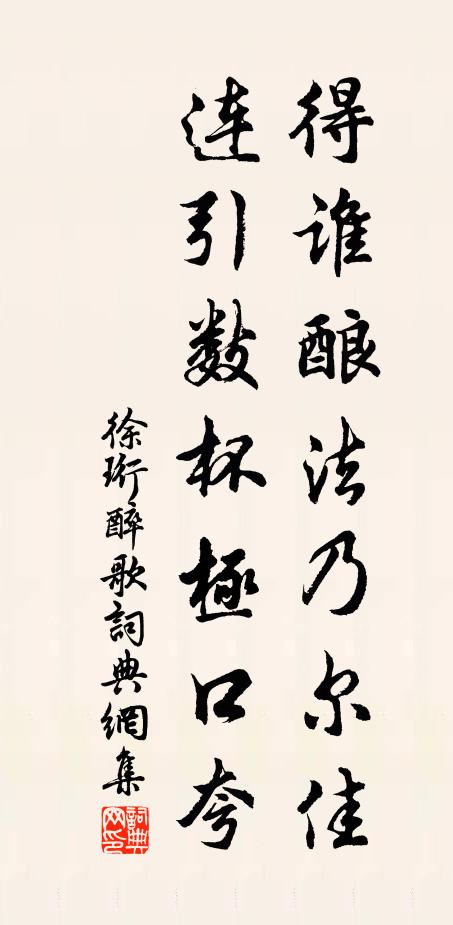 得谁酿法乃尔佳
连引数杯極口夸
徐珩醉歌詞典網集
詞典网印